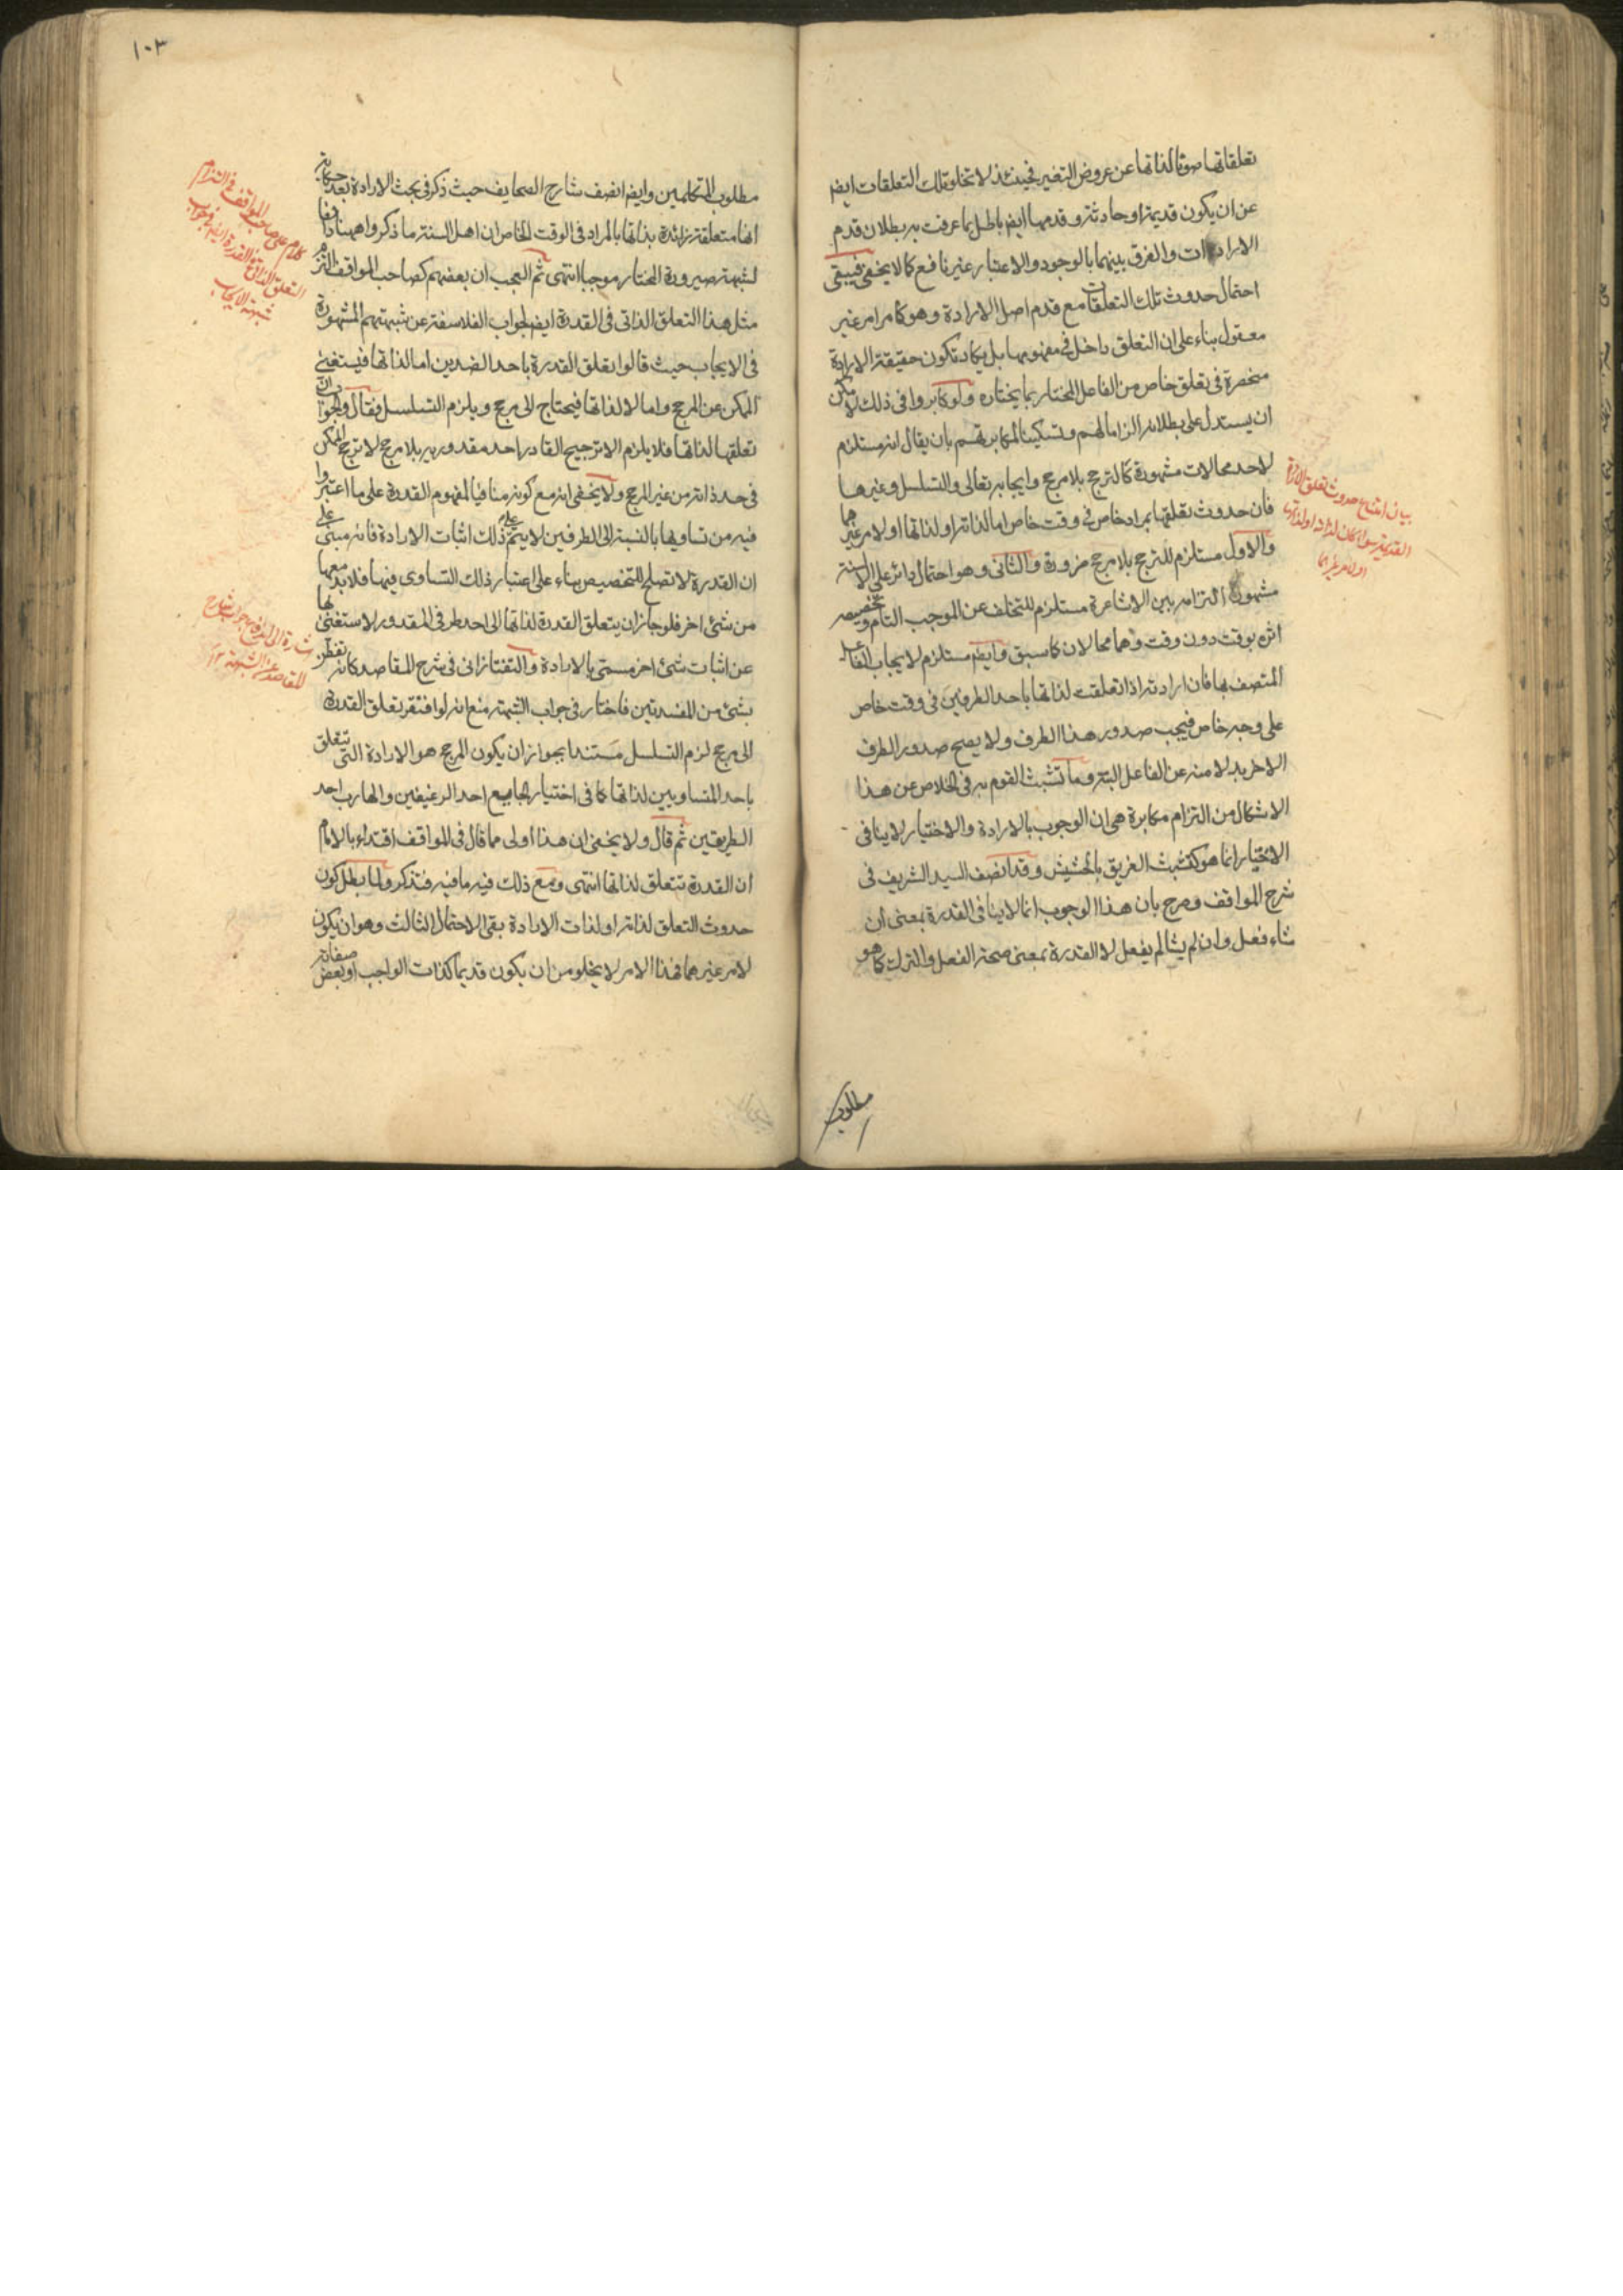 تعلقاتها صونا لذاتها عن عروض التغير فحينئذ لا تخلو تلك التعلقات ايضا
عن ان يكون قديمة او حادثة وقدمها ايضا باطل بما عرفت به بطلان قدم
الارادات والفرق بينهما بالوجود والاعتبار غير نافع كما لا يخفى فيبقى
احتمال حدوث تلك التعلقات مع قدم اصل الارادة وهو كما مر امر غير
معقول بناء على ان التعلق داخل فى مفهومها بل يكاد تكون حقيقة الارادة
منحصرة فى تعلق خاص من الفاعل المختار بما يختاره ولو كابروا فى ذلك لامكن
ان يستدل على بطلانه الزاما لهم وتسكيتا لمكابرتهم بان يقال انه مستلزم
لاحد محالات مشهورة كالترجح بلا مرجح وايجابه تعالى والتسلسل وغيرها
فان حدوث تعلقها بمراد خاص فى وقت خاص اما لذاته او لذاتها او لامر غيرهما
والاول مستلزم للترجح بلا مرجح ضرورة والثانى وهو احتمال دائر على الالسنة
مشهور التزامه بين الاشاعرة مستلزم للتخلف عن الموجب التام وتخصيصه
اثره بوقت دون وقت وهما محالان كما سبق وايضا مستلزم لايجاب الفاعل
المتصف بها فان ارادته اذا تعلقت لذاتها باحد الطرفين فى وقت خاص
على وجه خاص فيجب صدور هذا الطرف ولا يصح صدور الطرف
الاخر بدلا منه عن الفاعل البتة وما تشبث القوم به فى الخلاص عن هذا
الاشكال من التزام مكابرة هى ان الوجوب بالارادة والاختيار لا ينافى
الاختيار انما هو كتشبث الغريق بالحشيش وقد انصف السيد الشريف فى
شرح المواقف وصرح بان هذا الوجوب انما لا ينافى القدرة بمعنى ان
شاء فعل وان لم يشا لم يفعل لا القدرة بمعنى صحة الفعل والترك كما هو
بيان امتناع حدوث تعلق الارادة
القديمة سواء كان لذاته او لذاتها
او لامر غيرهما
مطلوب
١٠٣
مطلوب المتكلمين وايضا انصف شارح الصحايف حيث ذكر فى بحث الارادة بعد حكاية
انها متعلقة زائدة بذاتها بالمراد فى الوقت الخاص ان اهل السنة ما ذكروا ههنا دفعا
لشبهة صيرورة المختار موجبا انتهى ثم العجب ان بعضهم كصاحب المواقف التزم
مثل هذا التعلق الذاتى فى القدرة ايضا لجواب الفلاسفة عن شبهتهم المشهورة
فى الايجاب حيث قالوا تعلق القدرة باحد الضدين اما لذاتها فيستغنى
الممكن عن المرجح واما لا لذاتها فيحتاج الى مرجح ويلزم التسلسل فقال والجواب ان
تعلقها لذاتها فلا يلزم الا ترجيح القادر احد مقدوريه بلا مرجح لا ترجح الممكن
فى حد ذاته من غير المرجح ولا يخفى انه مع كونه منافيا لمفهوم القدرة على ما اعتبروا
فيه من تساويها بالنسبة الى الطرفين لا يتم ذلك عليه اثبات الارادة فانه مبنى على
ان القدرة لا تصلح للتخصيص بناء على اعتبار ذلك التساوى فيها فلا بد معها
من شئ اخر فلو جاز ان يتعلق القدرة لذاتها الى احد طرفى المقدور لاستغنى بها
عن اثبات شئ اخر مسمى بالارادة والتفتازانى فى شرح المقاصد كانه تفطن
بشئ من المفسدتين فاختار فى جواب الشبهة منع انه لو افتقر تعلق القدرة
الى مرجح لزم التسلسل مستندا بجواز ان يكون المرجح هو الارادة التى تتعلق
باحد المتساويين لذاتها كما فى اختيار الجايع احد الرغيفين والهارب احد
الطريقين ثم قال ولا يخفى ان هذا اولى مما قال فى المواقف اقتداء بالامام
ان القدرة تتعلق لذاتها انتهى ومع ذلك فيه ما فيه فتذكر ولما بطل كون
حدوث التعلق لذاته او لذات الارادة بقى الاحتمال الثالث وهو ان يكون
لامر غيرهما فهذا الامر لا يخلو من ان يكون قديما كذات الواجب او بعض صفاته
كلام على صاحب المواقف فى التزام
التعلق الذاتى فى القدرة ايضا فى جواب
شبهة الايجاب
اشارة الى ما فى جواب شارح
المقاصد عن الشبهة ١٢